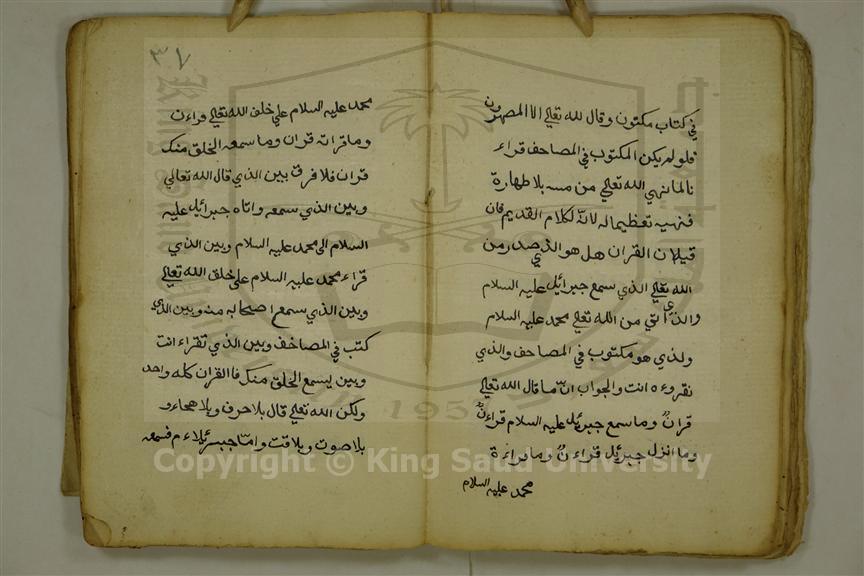 في كتاب مكنون وقال لله تعالى الا المصهرون
فلو لم يكن المكتوب في المصاحف قراء
نا لما نهي الله تعالى من مسه بلا طهارة
فنهيه تعظيما له لانه لكلام القديم فان
قيل ان القران هل هو الذي صدر من
الله تعالى الذي سمع جبرائيل عليه السلام
والذي اتي من الله تعالى محمد عليه السلام
ولذي هو مكتوب في المصاحف والذي
نقروءه انت والجواب ان ما قال الله تعالى
قران وما سمع جبريل عليه السلام قراءن
وما انزل جبرئيل قراءن وما قراءة
محمد عليه السلام
٣٧
محمد عليه السلام علي خلق الله تعالى قراءن
وما قراته قران وما سمعه الخلق منك
قران فلا فرق بين الذي قال الله تعالي
وبين الذي سمعه واتاه جبرائيل عليه
السلام الى محمد عليه السلام وبين الذي
قراء محمد عليه السلام على خلق الله تعالى
وبين الذي سمع اصحابه منه وبين الذي
كتب في المصاخف وبين الذي تقراء انت
وبين يسمع الخلق منك فا القران كله واحد
ولكن الله تعالى قال بلا حرف وبلا هجاء و
بلا صوت وبلا قت واما جبرئيلاء م فسمعه
Copyright © King Saud University
1957